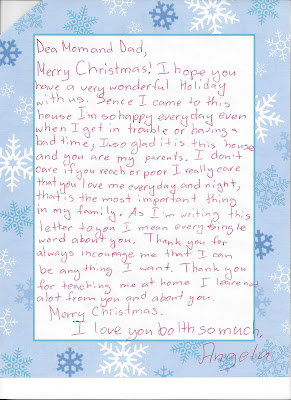 Dea Mom and Dad,
Merry Christmas! I hope you
have a very wonderful Holiday
with us. Sence I came to this
house I'm so happy everyday even
when I get in trouble or having a
bad time, I so glad it is this house
and you are my parents. I don't
care if you reach or poor I really care
that you love me everyday and night,
that's the most important thing
in my family. As I'm writing this
letter to you I mean every single
word about you. Thank you for
always incourage me that I can
be any thing I want. Thank you
for teaching me at home I learened
alot from you and about you.
Merry Christmas.
I love you bolth so much.
Angela